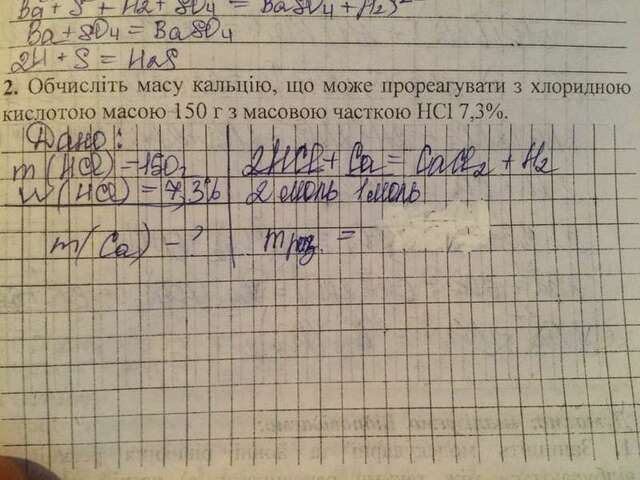 Ba + S + H2 + SO4 = BaSO4 + H2S
Ba + SO4 = BaSO4
2H + S = H2S
2. Обчисліть масу кальцію, що може прореагувати з хлоридною
кислотою масою 150 г з масовою часткою HCl 7,3%.
Дано:
m(HCl) = 150г
w(HCl) = 7,3%
m(Ca) - ?
2HCl + Ca = CaCl2 + H2
2 моль 1 моль
m роз. =